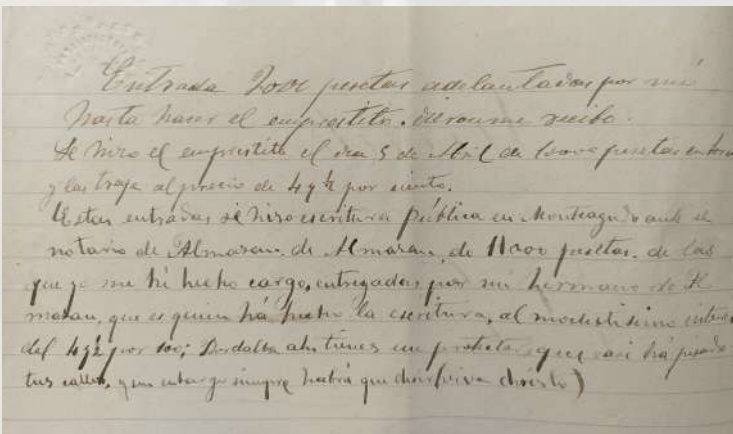 Entrada 2000 pesetas adelantadas por mi
hasta hacer el empréstito. dieronme recibo.
Se hizo el empréstito el dia 5 de Abril de pesetas
y las traje al precio de 4 y ½ por ciento.
Estas entradas se hizo escritura pública en Monteagudo ante el
notario de Almazan, de Almazan, de 11000 pesetas. de las
que yo me hé hecho cargo, entregadas por mi hermano de Al
mazan, que es quien há hecho la escritura, al modestisimo interes
del 4 y ½ por 100; Bordalba ahi tienes un protector que casi há pisado
tus calles, y sin embargo siempre habrá que decir (viva Cristo)